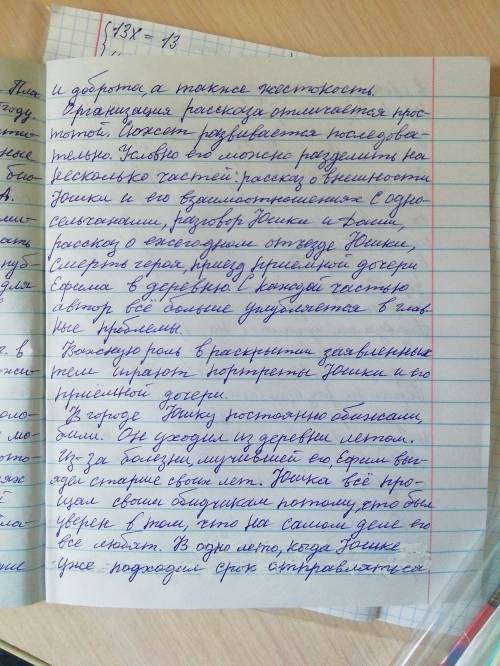 13x = 13
Пла
и доброта, а также жестокость.
году
Организация рассказа отличается прос-
тотой. Сюжет развивается последова-
тельно. Условно его можно разделить на
ные
несколько частей: рассказ о внешности
био-
Юшки и его взаимоотношениях с одно-
А.
сельчанами, разговор Юшки и Даши,
ми-
рассказ о ежегодном отъезде Юшки,
ать
смерть героя, приезд приёмной дочери
пуб-
Ефима в деревню. С каждой частью
для
автор всё больше углубляется в глав-
ные проблемы.
Важную роль в раскрытии заявленных
г. в
тем играют портреты Юшки и его
приёмной дочери.
В городе Юшку постоянно обижали,
оло-
били. Он уходил из деревни летом.
мо-
Из-за болезни, мучившей его, Ефим выг-
ядел старше своих лет. Юшка всё про-
ях
щал своим обидчикам потому, что был
уверен в том, что на самом деле его
ла-
все любят. В одно лето, когда Юшке
уже подходил срок отправляться